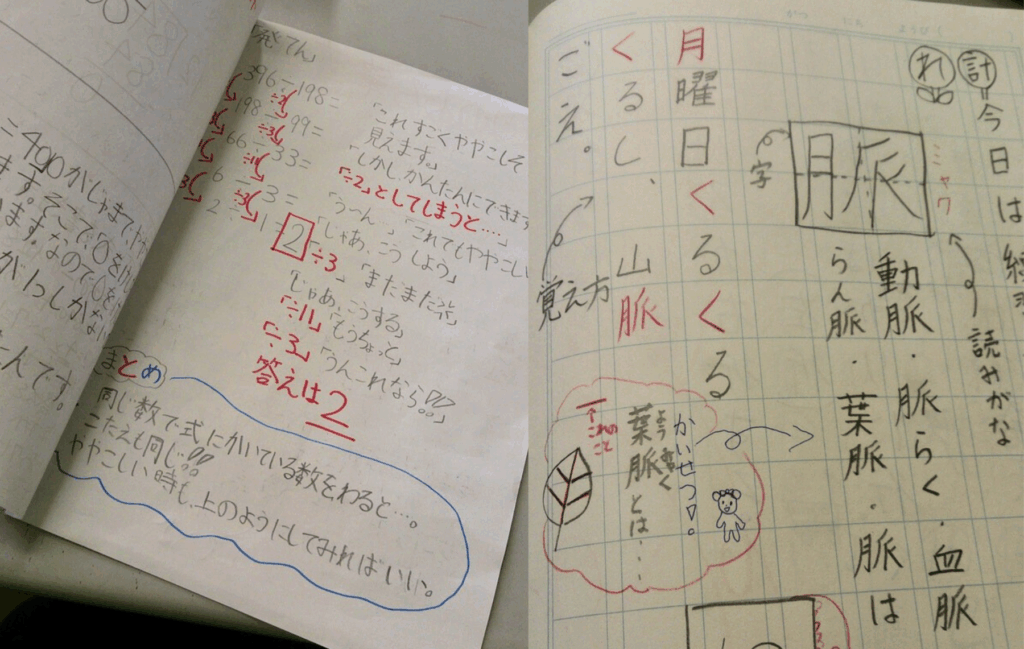 「発てん」
396÷198=
÷2
198÷99=
÷3
66÷33=
÷11
6÷3=
÷3
2÷1=2
「これすごくややこしそ
見えます。」
「しかし、かんたんにできます
「÷2」としてしまうと…。」
「うーん」「これでもややこしい
「じゃあ、こうしよう」
「÷3
「じゃあ、こうする」
「÷11」「もうちょっと」
「÷3」「うんこれなら!!」
答えは2
まとめ
同じ数で式にかいている数をわると…。
こたえも同じ!!
ややこしい時も、上のようにしてみればいい。
=490がじゃまで、やや
ます。そこで、0を
ます。なので、0を
が1つしか
んです。
計 今日は
れ
読みがな
脈
ミャク
字
動脈・脈らく・血脈
らん脈・葉脈・脈は
月曜日くるくる
くるし、山脈
ごえ。
覚え方
かいせつ!。
ようみゃく
葉脈とは・・・
これのこと